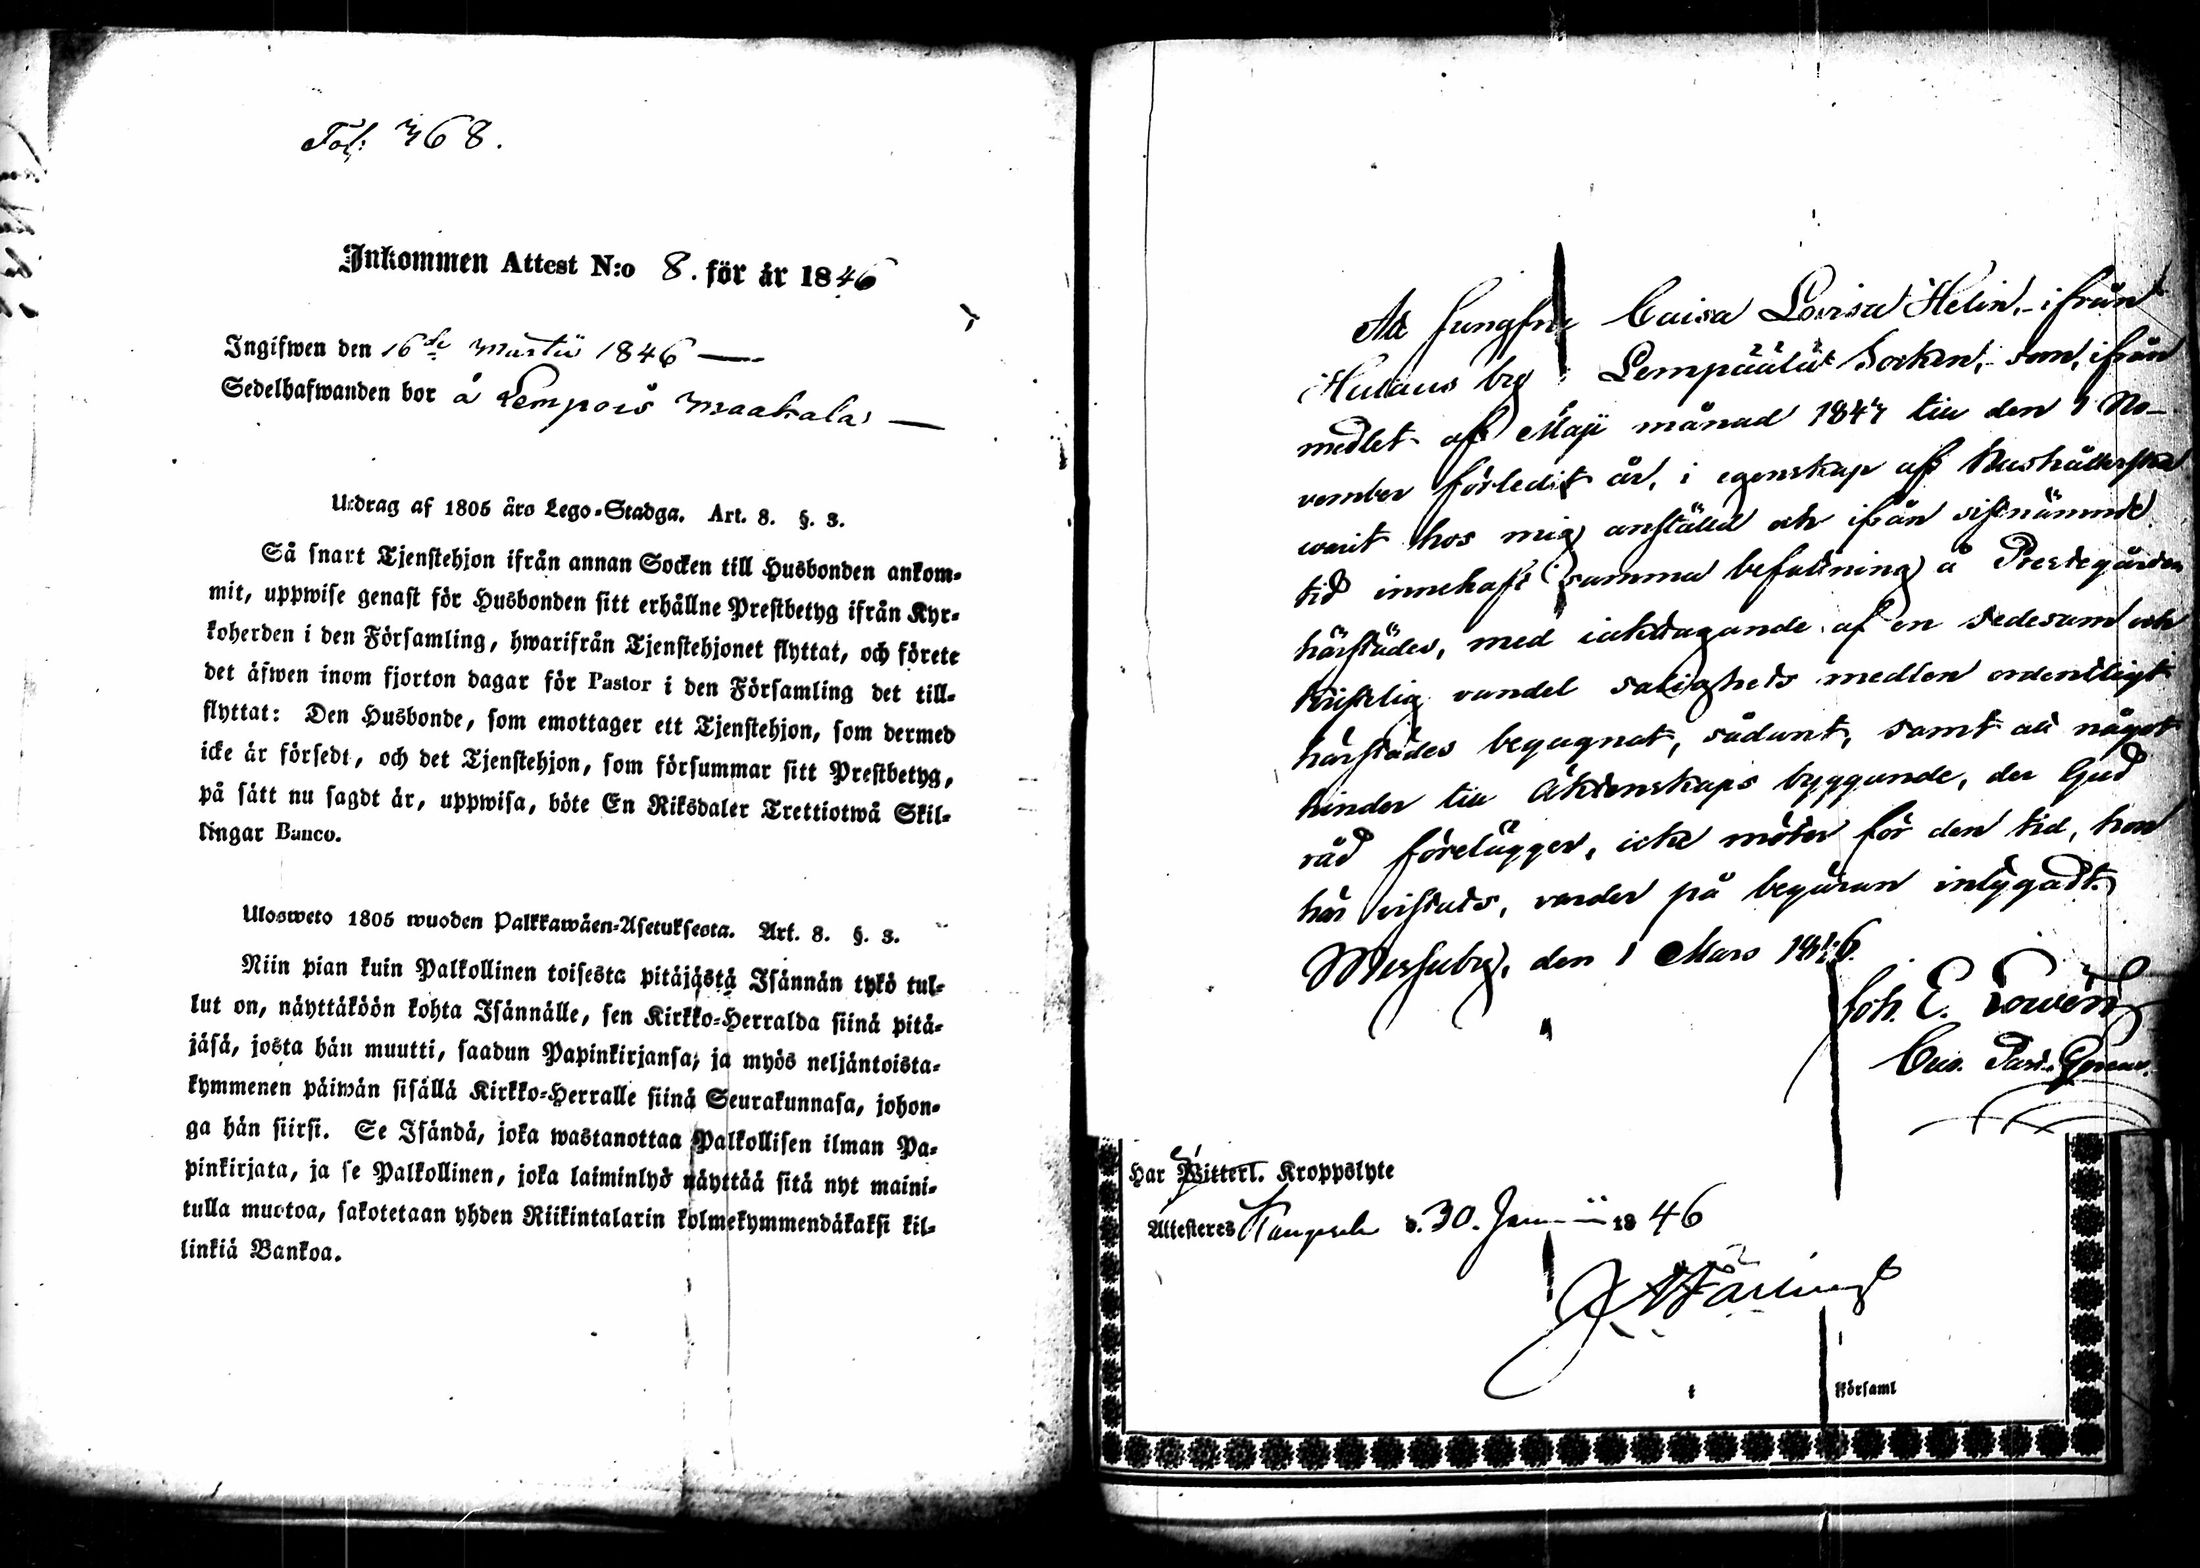 Fol: 368.
Inkommen Attest N:o 8. för år 1846
Ingifwen den 16de Martii 1846
Sedelhafwanden bor å Lempois Maakala
Utdrag af 1805 års Lego-Stadga. Art. 8. §. 3.
Så snart Tjenstehjon ifrån annan Socken till Husbonden ankom-
mit, uppwise genast för Husbonden sitt erhållne Prestbetyg ifrån Kyr-
koherden i den Församling, hwarifrån Tjenstehjonet flyttat, och förete
det äfwen inom fjorton dagar för Pastor i den Församling det till-
flyttat: Den Husbonde, som emottager ett Tjenstehjon, som dermed
icke är försedt, och det Tjenstehjon, som försummar sitt Prestbetyg,
på sätt nu sagdt är, uppwisa, böte En Riksdaler Trettiotwå Skil-
lingar Banco.
Ulosweto 1805 wuoden Palkkawäen-Asetuksesta. Art. 8. §. 3.
Niin pian kuin Palkollinen toisesta pitäjästä Isännän tykö tul-
lut on, näyttäköön kohta Isännälle, sen Kirkko-Herralda siinä pitä-
jäsä, josta hän muutti, saadun Papinkirjansa; ja myös neljäntoista-
kymmenen päiwän sisällä Kirkko-Herralle siinä Seurakunnasa, johon-
ga hän siirsi. Se Isändä, joka wastanottaa Palkollisen ilman Pa-
pinkirjata, ja se Palkollinen, joka laiminlyö näyttää sitä nyt maini-
tulla muotoa, sakotetaan yhden Riikintalarin kolmekymmendäkaksi kil-
linkiä Bankoa.
Att Jungfru Caisa Lovisa Helin, ifrån
Hulaus by Lempäälä Socken, som, ifrån
medlet af Maji månad 1844 till den 1 No-
vember förledit år, i egenskap af Hushållerska
varit hos mig anställd och ifrån sistnämnde
tid innehaft samma befattning å Prestegården
härstädes, med iakttagande af en sedesam och
kristelig vandel salighets medlen ordentligt
härstädes begagnat, sådant, samt att något
hinder till Äktenskaps byggande, der Gud
råd förelägger, icke möter för den tid, hon
här vistats, varder på begäran intygadt.
Messuby, den 1 Mars 1846.
Joh. E.
Har Witterl. Kroppslyte
Attesteres Kangasala d. 30. Januarii 1846
Församl